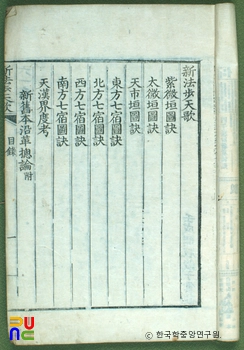 新法步天歌
紫微垣圖訣
太微垣圖訣
天市垣圖訣
東方七宿圖訣
北方七宿圖訣
西方七宿圖訣
南方七宿圖訣
天漢界度考
新舊本沿革摠論附
目錄
한국학중앙연구원